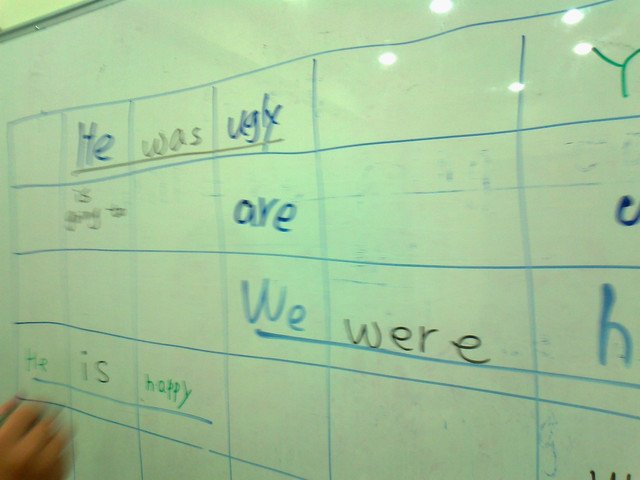 He was ugly
is
going to
are
We were
He is happy